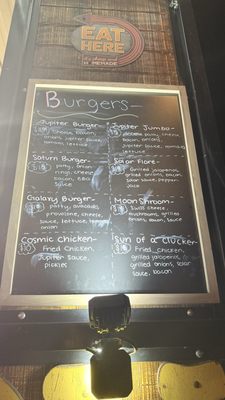 EAT
HERE
HOMEMADE
Burgers-
Jupiter Burger-
cheese, bacon,
onions, Jupiter sauce,
tomato, lettuce
Jupiter Jumbo-
patty, cheese,
bacon, onions,
Jupiter sauce, tomato
lettuce
Saturn Burger-
patty, onion
rings, cheese,
bacon, BBQ
sauce
Solar Flare-
Grilled jalapeños,
grilled onions, bacon
solar sauce, pepper-
Galaxy Burger-
patty, avocados,
provolone, cheese,
sauce, lettuce, tomato
onion
Moon Shroom-
Swiss cheese,
mushrooms, grilled
onions, sauce
Cosmic chicken-
$10 Fried Chicken,
Jupiter sauce,
pickles
Sun of a Clucker-
Fried Chicken,
grilled jalapeños,
grilled onions, solar
sauce, bacon